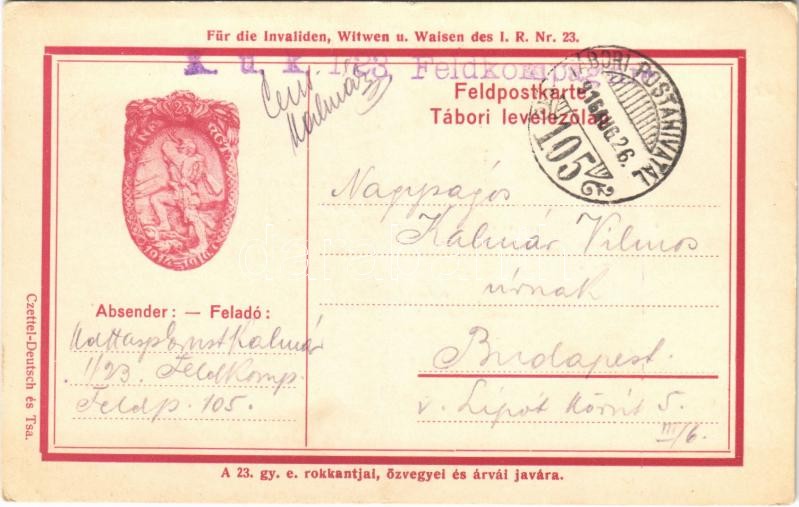 Für die Invaliden, Witwen u. Waisen des I. R. Nr. 23.
K. u. k. 1/23 Feldkomp
Kalmár
Feldpostkarte
Tábori levelezőlap
TÁBORI POSTAHIVATAL
916 AUG. 26.
105
23
1914-1916
Nagyságos
Kalmár Vilmos
úrnak
Budapest.
v. Lipót Körút 5.
III/6.
Absender: — Feladó:
Ernst Kalmár
1/23. Feldkomp.
Feldp. 105.
Czettel-Deutsch és Tsa.
A 23. gy. e. rokkantjai, özvegyei és árvái javára.